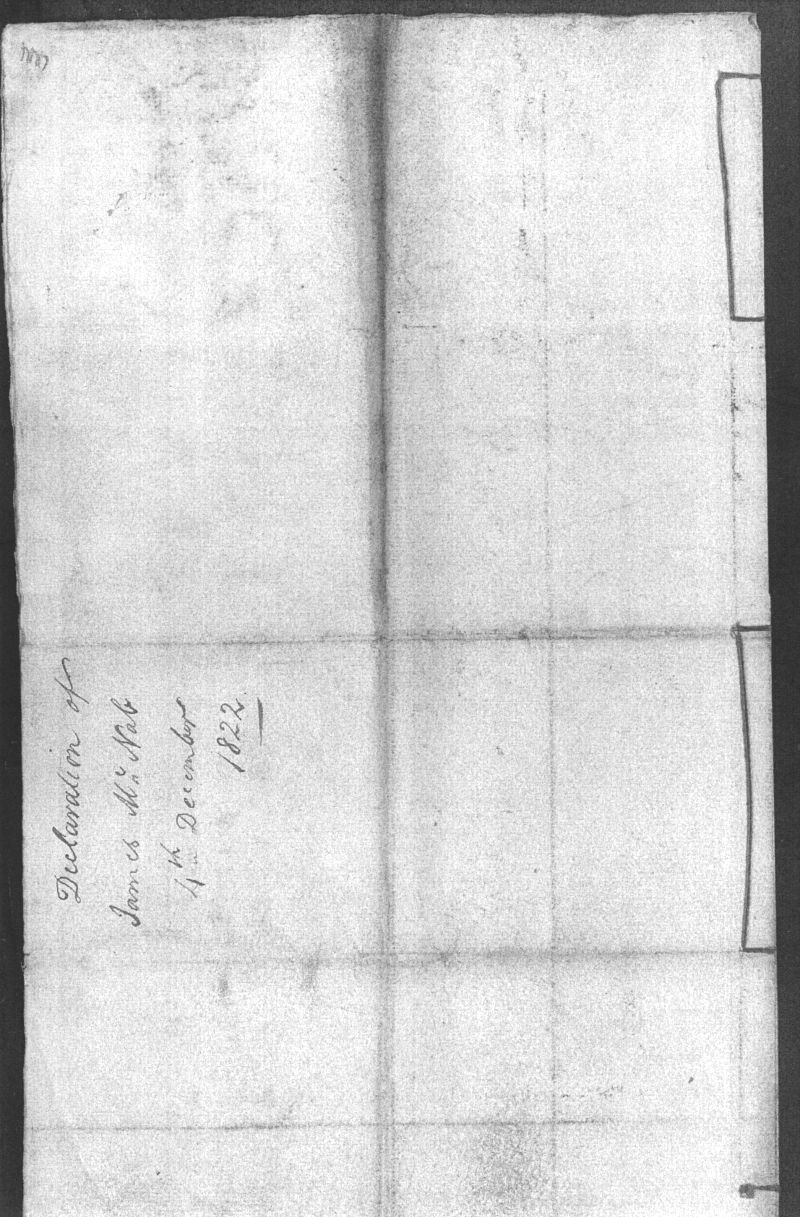 Declaration of
James Mc Nab
4th December
1822